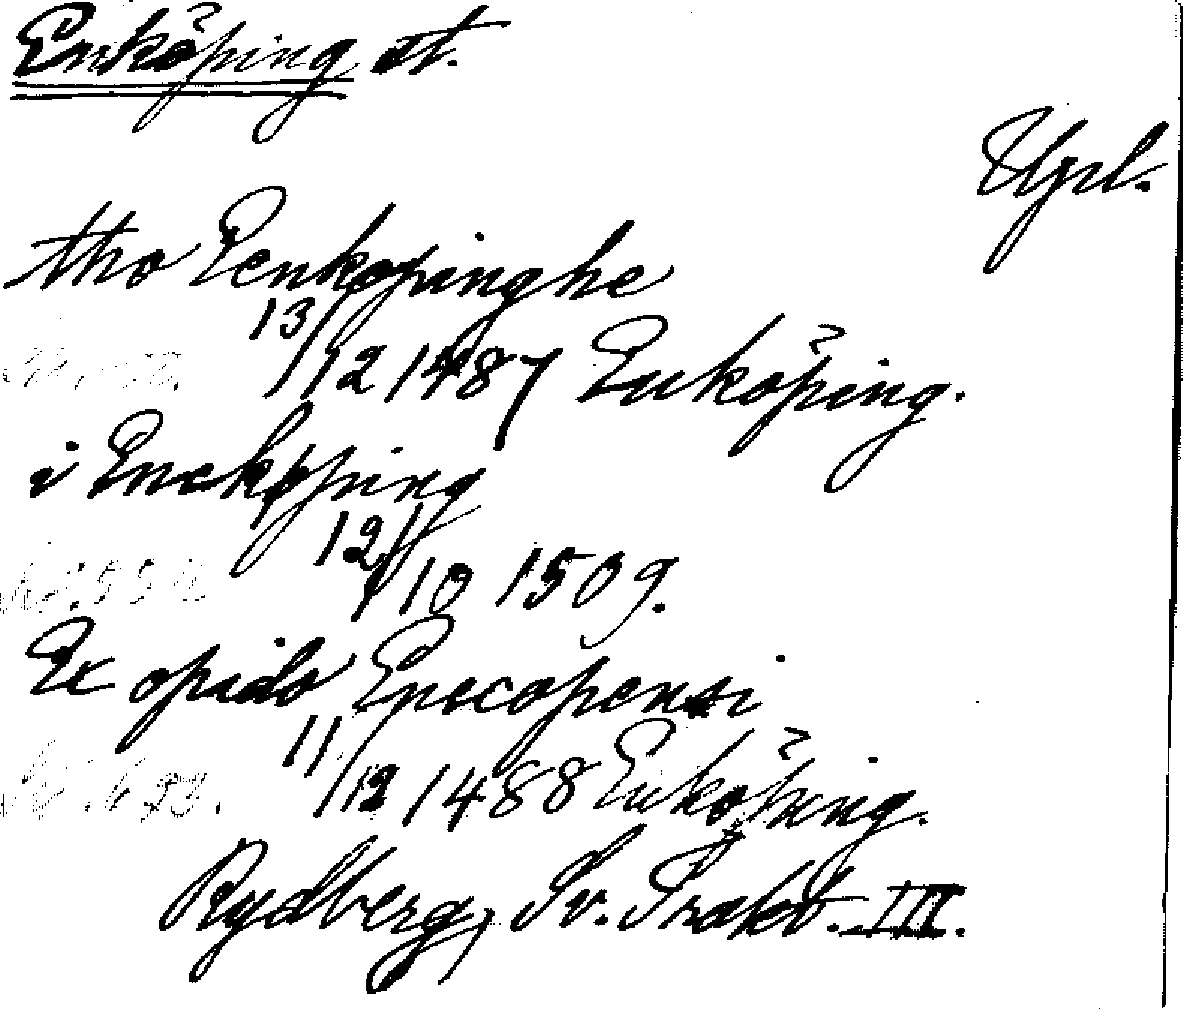 Enköping st.
Uppl.
tho Eenkopinghe
13/12 1487 Enköping.
i Enekøping
12/10 1509.
Ex opido Enecopensi
11/12 1488 Enköping.
Rydberg, Sv. Trakt. III.